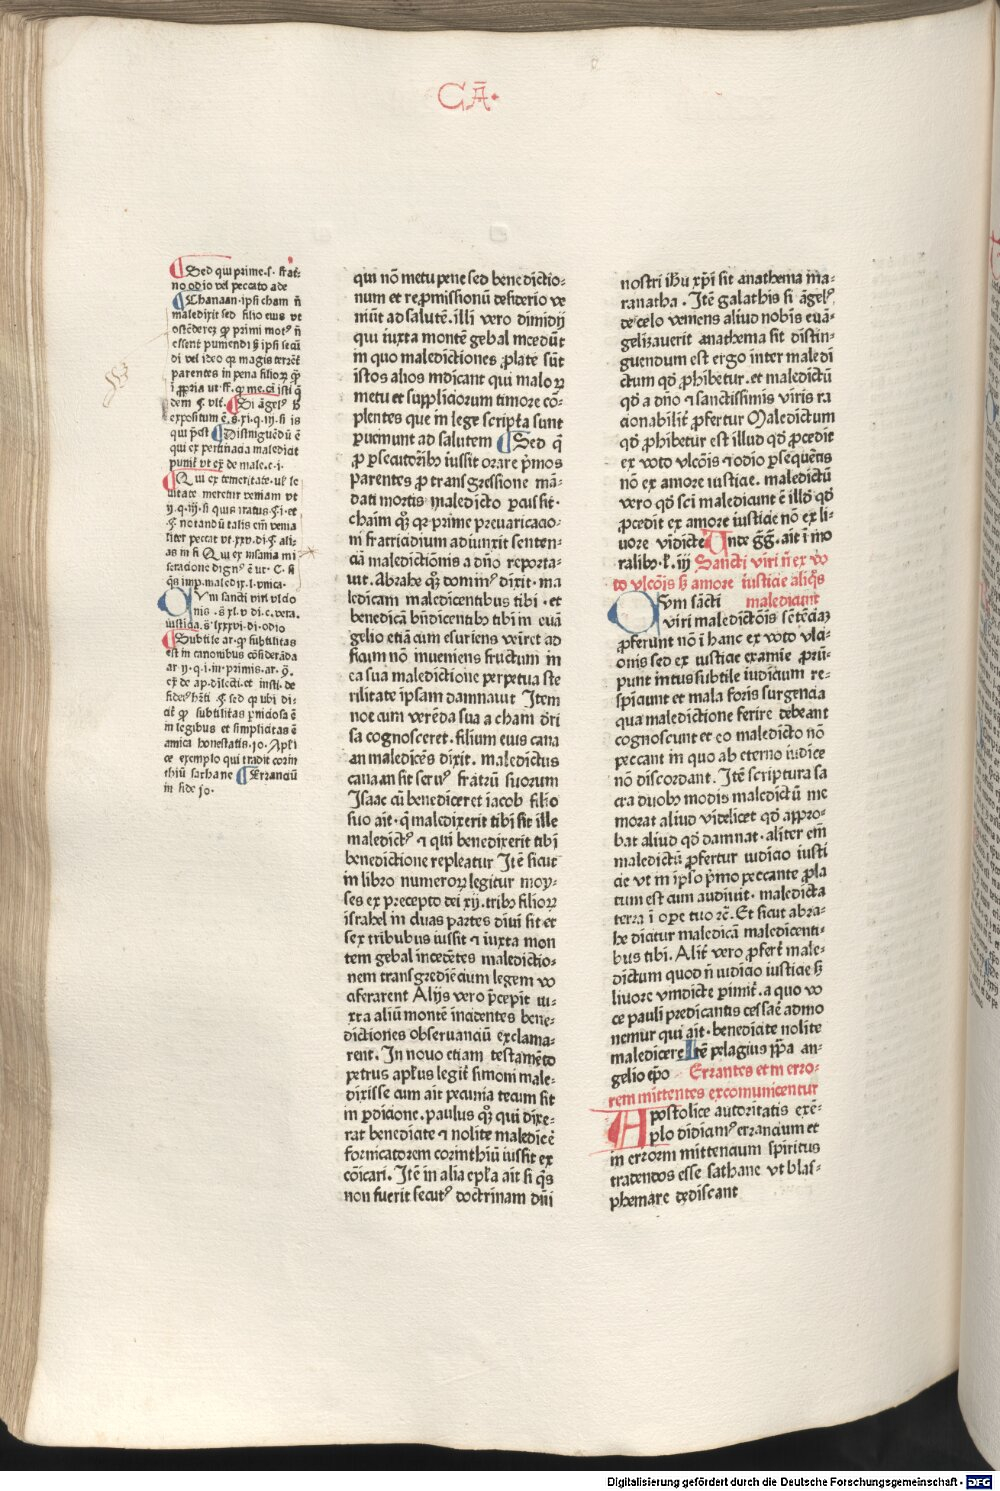 CĀ·
Sed qui prime.s. frat͛
no odio vel peccato ade
Chanaan·ipsi cham n̄
maledixit sed filio eius vt
ostēderet qp primi mot⁹ n̄
essent puniendi s̄ ipsi secū
di vel ideo qr magis terrēt
parentes in pena filioꝝ
dem
Si āgel⁹
expositum ē.s.xi.q.iij.si is
qui pēst Distinguēdū ē
qui ex pertinacia maledicit
punit͛ vt ex̄ de male.c.i.
Qui ex temeritate·vl͛ le
uitate meretur veniam vt
ij.q.iij.si quis iratus.
notandū talis em̄ venia
liter peccat vt.xxv.di.
as in fi Qui ex insania mi
seratione dign⁹ ē ut·C.si
q̄s imp.maledix.l.vnica·
Cvm sancti viri vltio
nis.s̄ xl.v di.c.vera.
iusticia.s̄ lxxxvi·di·odio
Subtile ar.qp subtilitas
est in canonibus cōsiderāda
ar ij.q.i.in·primis.ar.
ex̄ de ap·dilecti·et insti.de
di⸗
cit͛ qp subtilitas pniciosa ē
in legibus et simplicitas ē
amica honestatis.io.Apl͛i
ce exemplo qui tradit corin
thiū sathane Erranciū
in fide io·
qui nō metu pene sed benedictio⸗
num et repromissionū desiderio ve
niūt ad salutē.illi vero dimidij
qui iuxta montē gebal incedūt
in quo maledictiones ꝓlate sūt
istos alios indicant qui maloꝝ
metu et suppliciorum timore cō⸗
plentes que in lege scripta sunt
ꝑueniunt ad salutem Sed q̄
ꝓ ꝑsecutorib⁹ iussit orare pͥmos
parentes ꝓ transgressione mā⸗
dati mortis maledicto ꝑcussit·
chaim qͣ qr prime preuaricacio⸗
ni fratricidium adiunxit senten⸗
ciā maledictiōnis a dn̄o reporta⸗
uit.Abrahe qͣ domin⁹ dixit.ma
ledicam maledicentibus tibi·et
benedicā bn̄dicentib⁹ tibi in euā
gelio etiā cum esuriens veīret ad
ficum nō inueniens fructum in
ea sua maledictione perpetua ste
rilitate ipsam damnauit Item
noe cum verēda sua a cham dri
sa cognosceret.filium eius cana
an maledicēs dixit.maledictus
canaan sit seru⁹ fratrū suorum
Isaac cū benediceret iacob filio
suo ait·q̄ maledixerit tibi sit ille
maledict⁹ ⁊ qui benedixerit tibi
benedictione repleatur Itē sicut
in libro numeroꝝ legitur moy⸗
ses ex precepto dei xij.trib⁹ filioꝝ
israhel in duas partes diuisit·et
sex tribubus iussit ⁊ iuxta mon
tem gebal incedētes maledictio⸗
nem transgrediēcium legem vo
aferarent Alijs vero pͨcepit iu⸗
xta aliū montē incidentes bene⸗
dictiones obseruanciū exclama⸗
rent. In nouo etiam testamēto
petrus apl͛us legit͛ simoni male⸗
dixisse cum ait pecunia tecum sit
in ꝑdicione.paulus qͣ qui dixe⸗
rat benedicite ⁊ nolite maledicē
fornicatorem corinthiū iussit ex
cōicari.Itē in alia epl͛a ait si q̄s
non fuerit secut⁹ doctrinam dn̄i
nostri ih̄u xp̄i sit anathema ma⸗
ranatha.Itē galathis si āgel⁹
de celo veniens aliud nobis euā⸗
gelizauerit anathema sit distin⸗
guendum est ergo inter maledi
ctum qd̓ ꝓhibetur.et maledictū
qd̓ a dn̄o ⁊ sanctissimis viris ra
cionabilit͛ ꝓfertur Maledictum
qd̓ ꝓhibetur est illud qd̓ ꝓcedit
ex voto vlcōis ⁊ odio ꝑsequētis
nō ex amore iusticie. maledictū
vero qd̓ sc̄i maledicunt ē illd̓ qd̓
ꝓcedit ex amore iusticie nō ex li⸗
uore vidicte Vnde gg̃. ait i mo
ralib⁹.l̓.iij Sancti viri n̄ ex vo
to vlcōis s̄ amore iusticie aliq̄s
maledicunt
Cvm sācti
viri maledictōis sētēciaꝫ
ꝓferunt nō ī hanc ex voto vlci⸗
onis sed ex iusticie examīe ꝓrū⸗
punt intus subtile iudicium re⸗
spiciunt et mala foris surgencia
qua maledictione ferire debeant
cognoscunt et eo maledicto nō
peccant in quo ab eterno iudice
nō discordant. Itē scriptura sa
cra duob⁹ modis maledictū me
morat aliud videlicet qd̓ appro⸗
bat aliud qd̓ damnat·aliter em̄
maledictū ꝓfertur iudicio iusti
cie vt in ipso pͥmo peccante ꝓla
tum est cum audiuit·maledicta
terra i oꝑe tuo rc̄. Et sicut abra⸗
he dicitur maledicā maledicenti⸗
bus tibi. Alit͛ vero ꝓfert͛ male⸗
dictum quod n̄ iudicio iusticie s̄
liuore vindicte ꝑimit͛.a quo vo
ce pauli predicantis cessaē admo
nemur qui ait·benedicite nolite
maledicere Itē pelagius pp̄a an⸗
gelio ep̄o Errantes et in erro⸗
rem mittentes excomunicentur
Apostolice autoritatis exē⸗
plo didiam⁹ errancium et
in errorm mittencium spiritus
tradendos esse sathane vt blas⸗
phemare dediscant
Digitalisierung gefördert durch die Deutsche Forschungsgemeinschaft · DFG